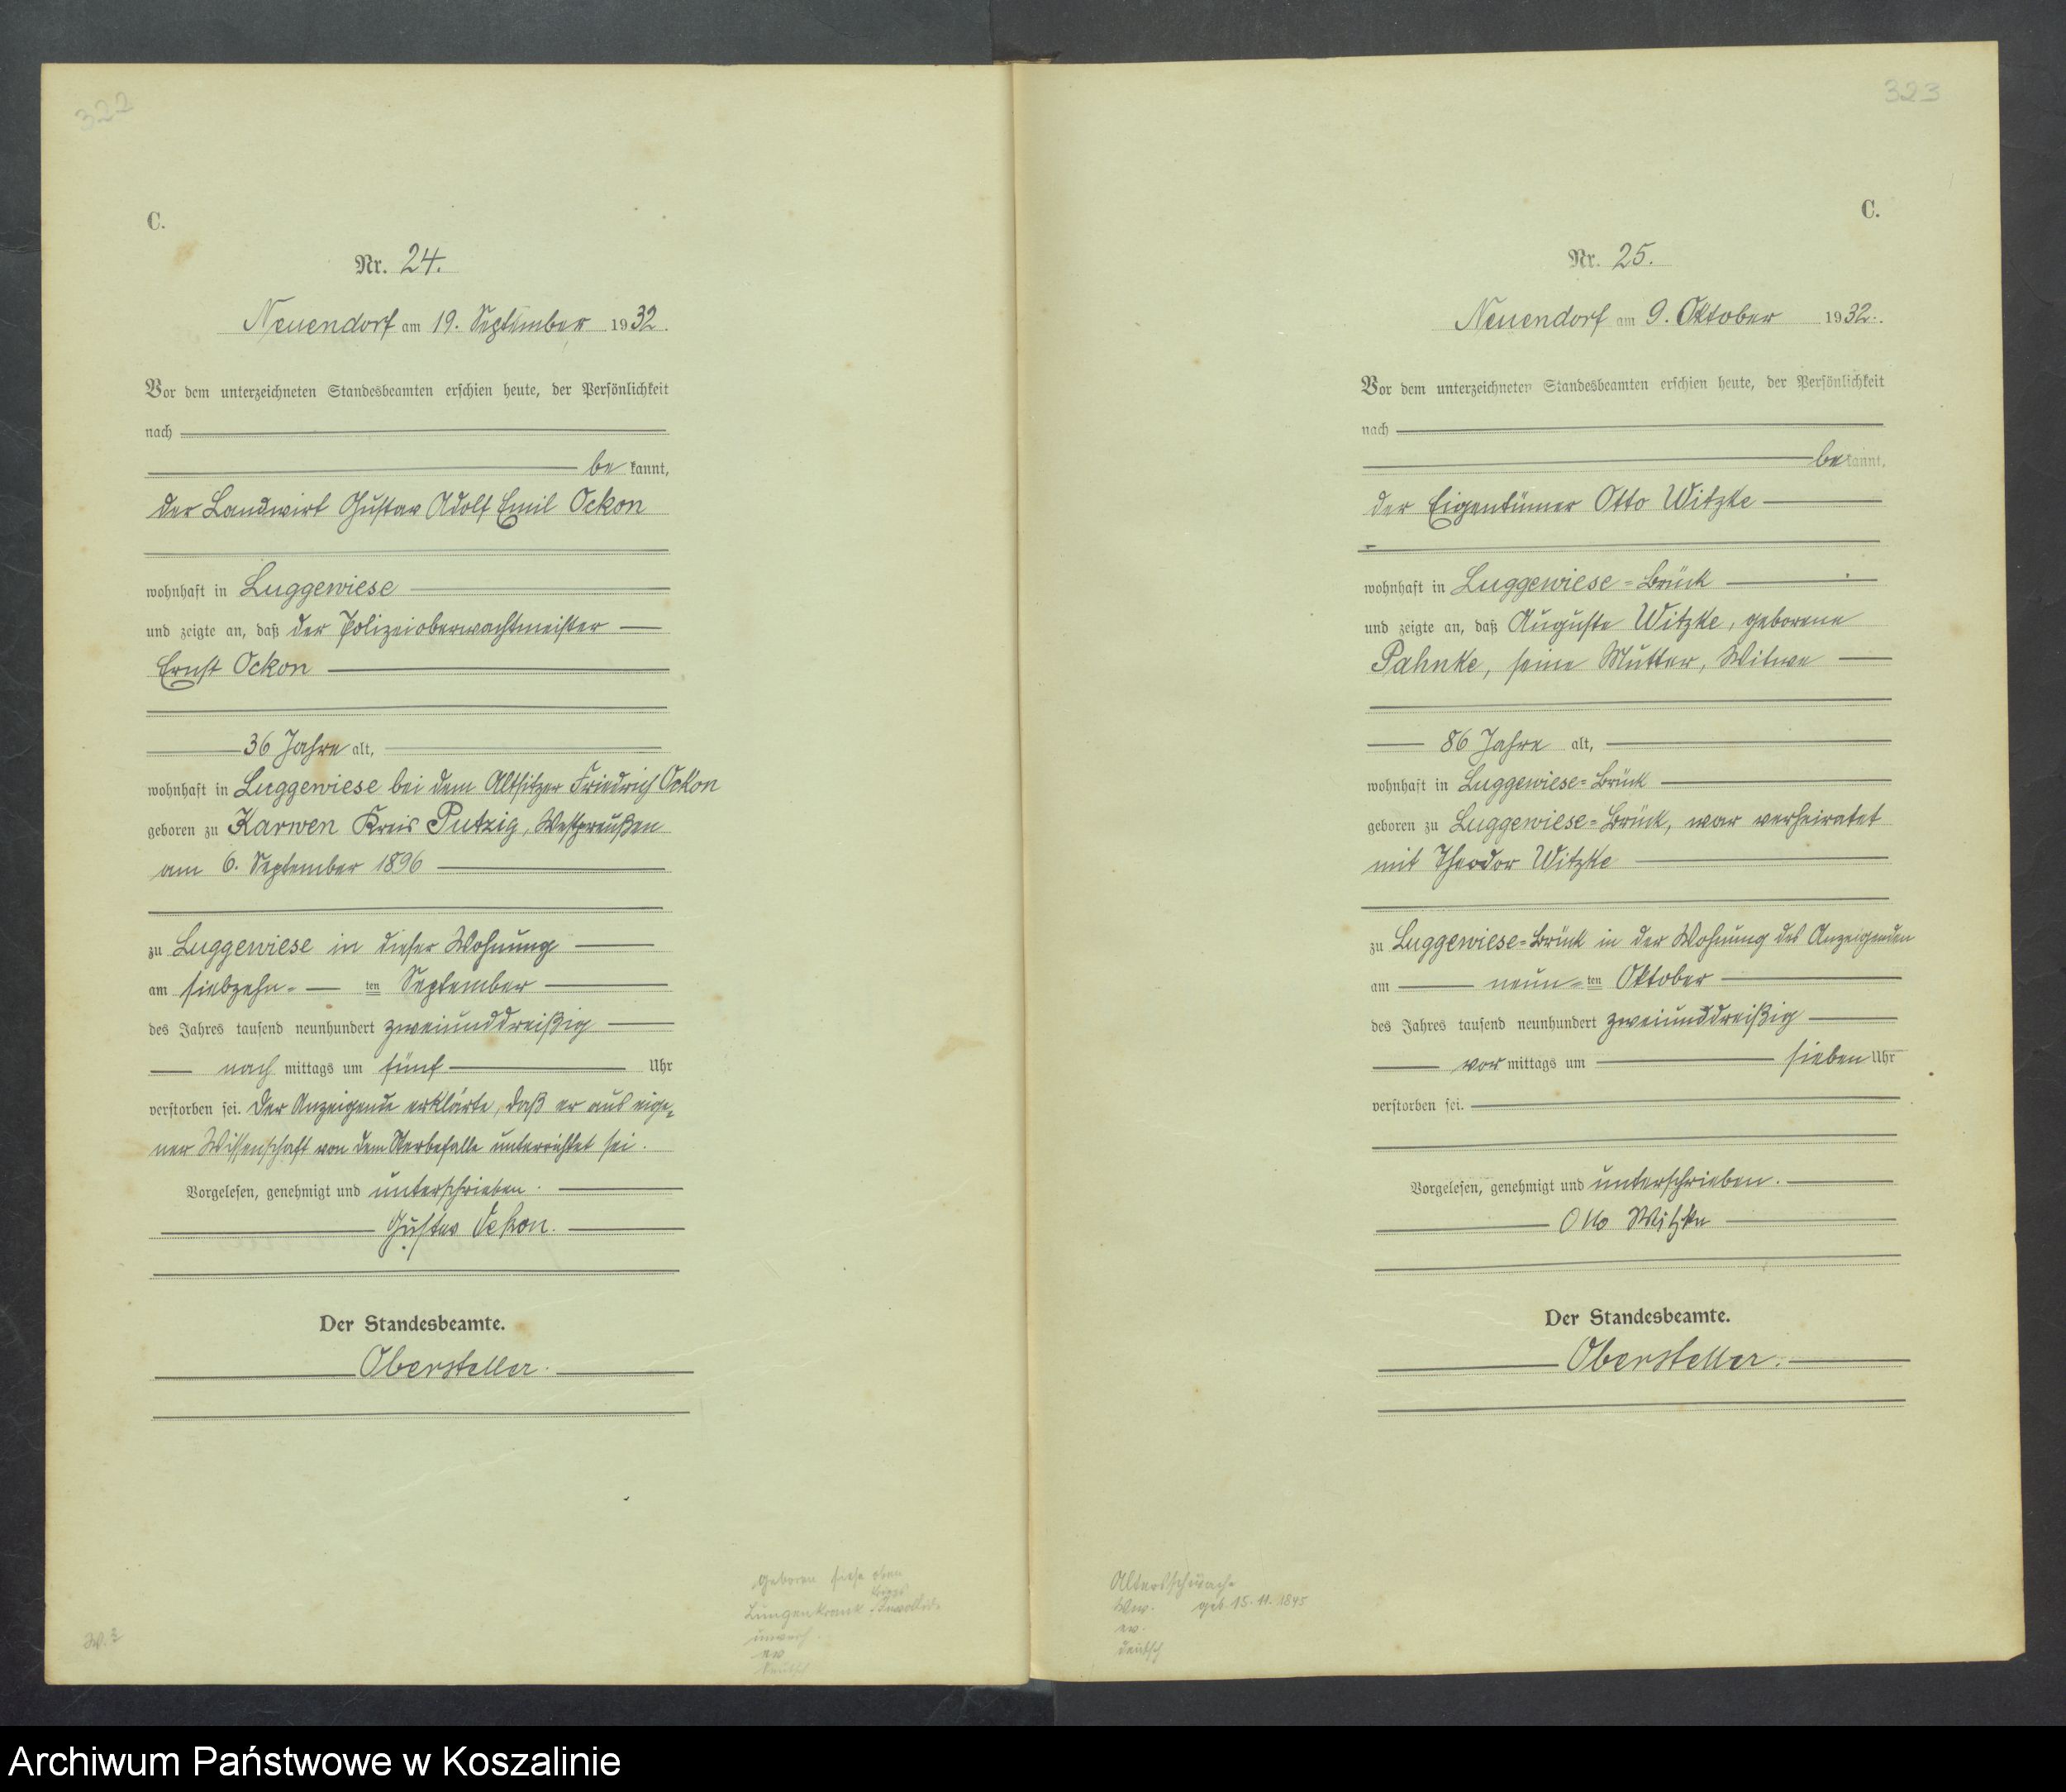 322
C.
Nr. 24.
Neuendorf am 19. September 1932.
Vor dem unterzeichneten Standesbeamten erschien heute, der Persönlichkeit
nach
be kannt,
der Landwirt Gustav Adolf Emil Ockon
wohnhaft in Luggewiese
und zeigte an, daß der Polizeioberwachtmeister
Ernst Ockon
36 Jahre alt,
wohnhaft in Luggewiese bei dem Altsitzer Friedrich Ockon
geboren zu Karwen Kreis Putzig, Westpreußen
am 6. September 1896
zu Luggewiese in dieser Wohnung
am siebzehn- ten September
des Jahres tausend neunhundert zweiunddreißig
nach mittags um fünf Uhr
verstorben sei. Der Anzeigende erklärte, daß er aus eige-
ner Wissenschaft von dem Sterbefalle unterrichtet sei.
Vorgelesen, genehmigt und unterschrieben.
Gustav Ockon.
Der Standesbeamte.
Obersteller.
geboren siehe oben
Kriegs
Lungenkrank Invalide
unverh.
ev
deutsch
323
C.
Nr. 25.
Neuendorf am 9. Oktober 1932.
Vor dem unterzeichneten Standesbeamten erschien heute, der Persönlichkeit
nach
be kannt,
der Eigentümer Otto Witzke
wohnhaft in Luggewiese=Brück
und zeigte an, daß Auguste Witzke, geborene
Pahnke, seine Mutter, Witwe
86 Jahre alt,
wohnhaft in Luggewiese=Brück
geboren zu Luggewiese=Brück, war verheiratet
mit Theodor Witzke
zu Luggewiese=Brück in der Wohnung des Anzeigenden
am neun= ten Oktober
des Jahres tausend neunhundert zweiunddreißig
vor mittags um sieben Uhr
verstorben sei.
Vorgelesen, genehmigt und unterschrieben.
Otto Witzke
Der Standesbeamte.
Obersteller.
Altersschwäche
Ww. geb. 15.11.1845
ev.
deutsch
Archiwum Państwowe w Koszalinie